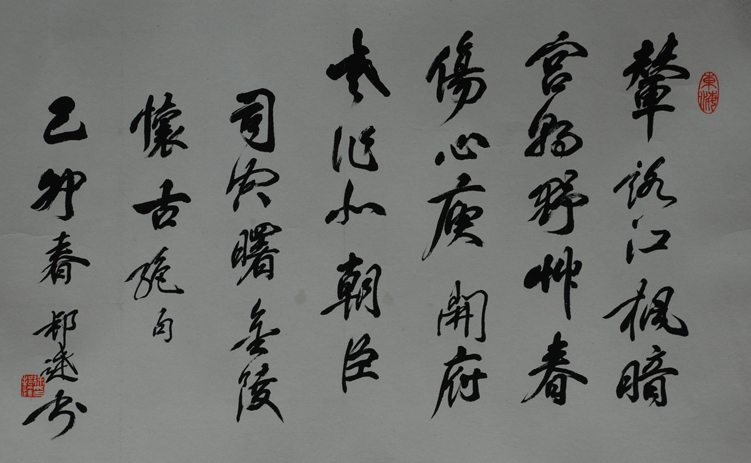 輦路江楓暗
宮野艸春
傷心庾開府
老作北朝臣
司空曙金陵
懷古絕句
己卯春書